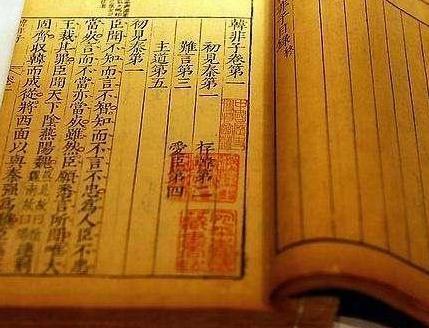 韓非子目錄終
韓非子卷第一
初見秦第一 存韓第二
難言第三 愛臣第四
主道第五
初見秦第一
臣聞不知而言不智知而不言不忠爲人臣不忠
當死言而不當亦當死雖然臣願悉言所聞唯大
王裁其罪臣聞天下陰燕陽魏 連荆
固齊收韓而成從將西面以與秦強爲